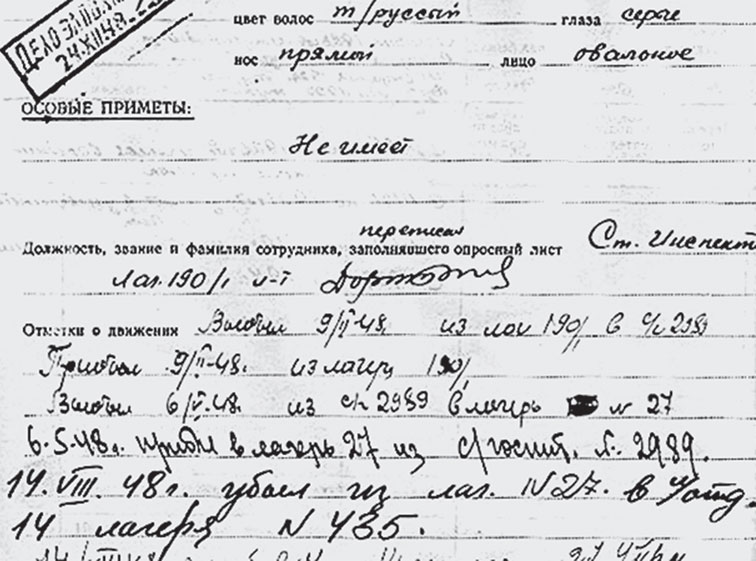 ДЕЛО
24.XII 49.
цвет волос т/русый глаза серые
нос прямой лицо овальное
ОСОБЫЕ ПРИМЕТЫ:
Не имеет
переписал
Должность, звание и фамилия сотрудника, заполнявшего опросный лист Ст. Инспект
Лаг. 190/1 л-т
Отметки о движении Выбыл 9/II-48. из лаг 190/1 в с/г 2989
Прибыл 9/II-48. из лагеря 190/1
Выбыл 6/V-48. из с/г 2989 в лагерь N 27
6.5.48г. прибыл в лагерь 27 из с/госпит. N. 2989.
14.VIII.48г. убыл из лаг. N 27. в
14 лагеря N 435.